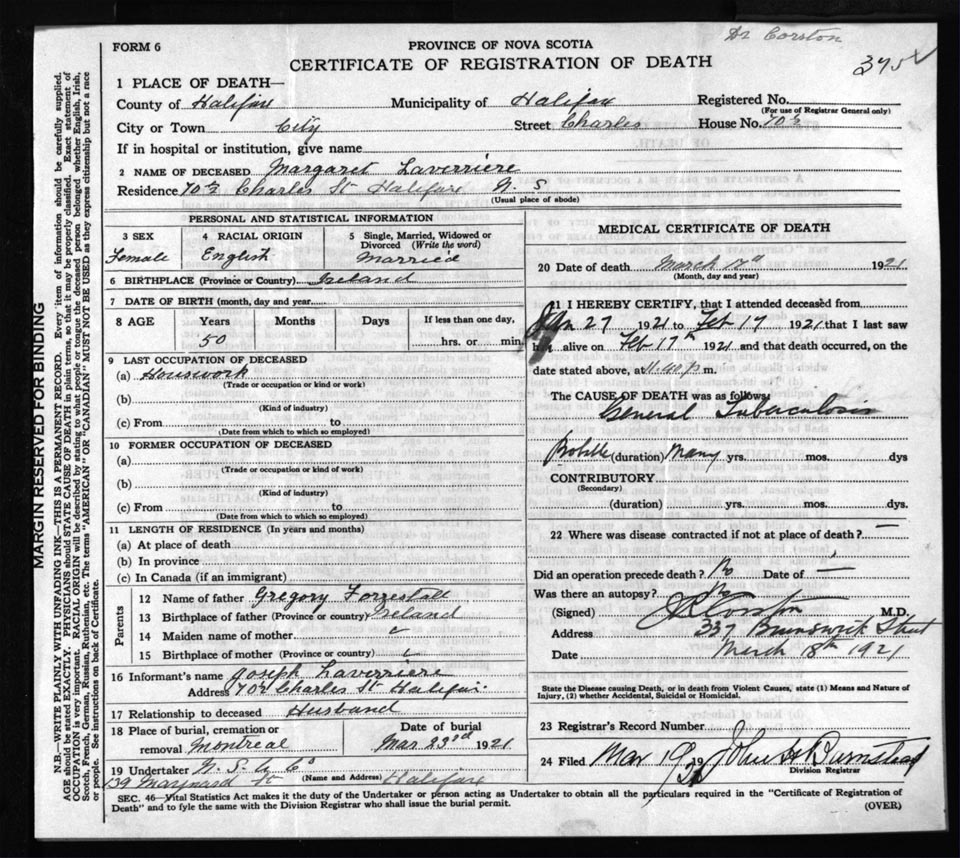 Dr Corston
FORM 6
PROVINCE OF NOVA SCOTIA
CERTIFICATE OF REGISTRATION OF DEATH
MARGIN RESERVED FOR BINDING
N.B.—WRITE PLAINLY WITH UNFADING INK—THIS IS A PERMANENT RECORD. Every item of information should be carefully supplied.
AGE should be stated EXACTLY. PHYSICIANS should STATE CAUSE OF DEATH in plain terms, so that it may be properly classified. Exact statement of
OCCUPATION is very important. RACIAL ORIGIN will be described by stating to what people or tongue the deceased person belonged whether English, Irish,
Scotch, French, German, Russian, Ruthenian, etc. The terms "AMERICAN" OR "CANADIAN" MUST NOT BE USED as they express citizenship but not a race
or people. See instructions on back of Certificate.
1 PLACE OF DEATH—
County of Halifax Municipality of Halifax Registered No.
(For use of Registrar General only)
City or Town City Street Charles House No.
If in hospital or institution, give name
2 NAME OF DECEASED Margaret Laverriere
Residence Charles St Halifax N. S
(Usual place of abode)
PERSONAL AND STATISTICAL INFORMATION
3 SEX 4 RACIAL ORIGIN 5 Single, Married, Widowed or Divorced (Write the word)
Female English Married
6 BIRTHPLACE (Province or Country) Ireland
7 DATE OF BIRTH (month, day and year)
8 AGE Years Months Days If less than one day,
50 hrs. or min.
9 LAST OCCUPATION OF DECEASED
(a) Housework
(Trade or occupation or kind or work)
(b)
(Kind of industry)
(c) From to
(Date from which to which so employed)
10 FORMER OCCUPATION OF DECEASED
(a)
(Trade or occupation or kind of work)
(b)
(Kind of industry)
(c) From to
(Date from which to which so employed)
11 LENGTH OF RESIDENCE (In years and months)
(a) At place of death
(b) In province
(c) In Canada (if an immigrant)
Parents
12 Name of father Gregory Forrestall
13 Birthplace of father (Province or country) Ireland
14 Maiden name of mother
15 Birthplace of mother (Province or country)
16 Informant's name Joseph Laverriere
Address Charles St Halifax
17 Relationship to deceased Husband
18 Place of burial, cremation or Date of burial
removal Montreal Mar 23rd 1921
19 Undertaker N. S. Co
(Name and Address)
139 Maynard St Halifax
MEDICAL CERTIFICATE OF DEATH
20 Date of death March 17th 1921
(Month, day and year)
21 I HEREBY CERTIFY, that I attended deceased from
Jan 27 1921 to Feb 17 1921 that I last saw
h alive on Feb 17th 1921 and that death occurred, on the
date stated above, at 11.40 p m.
The CAUSE OF DEATH was as follows:
General Tuberculosis
(duration) Many yrs. mos. dys
CONTRIBUTORY
(Secondary)
(duration) yrs. mos. dys.
22 Where was disease contracted if not at place of death? —
Did an operation precede death? No Date of —
Was there an autopsy? No
(Signed) Corston M.D.
Address 327 Brunswick Street
Date March 18th 1921
State the Disease causing Death, or in death from Violent Causes, state (1) Means and Nature of
Injury, (2) whether Accidental, Suicidal or Homicidal.
23 Registrar's Record Number
24 Filed Mar 19 1921 John H Barnstead
Division Registrar
SEC. 46—Vital Statistics Act makes it the duty of the Undertaker or person acting as Undertaker to obtain all the particulars required in the "Certificate of Registration of
Death" and to fyle the same with the Division Registrar who shall issue the burial permit. (OVER)